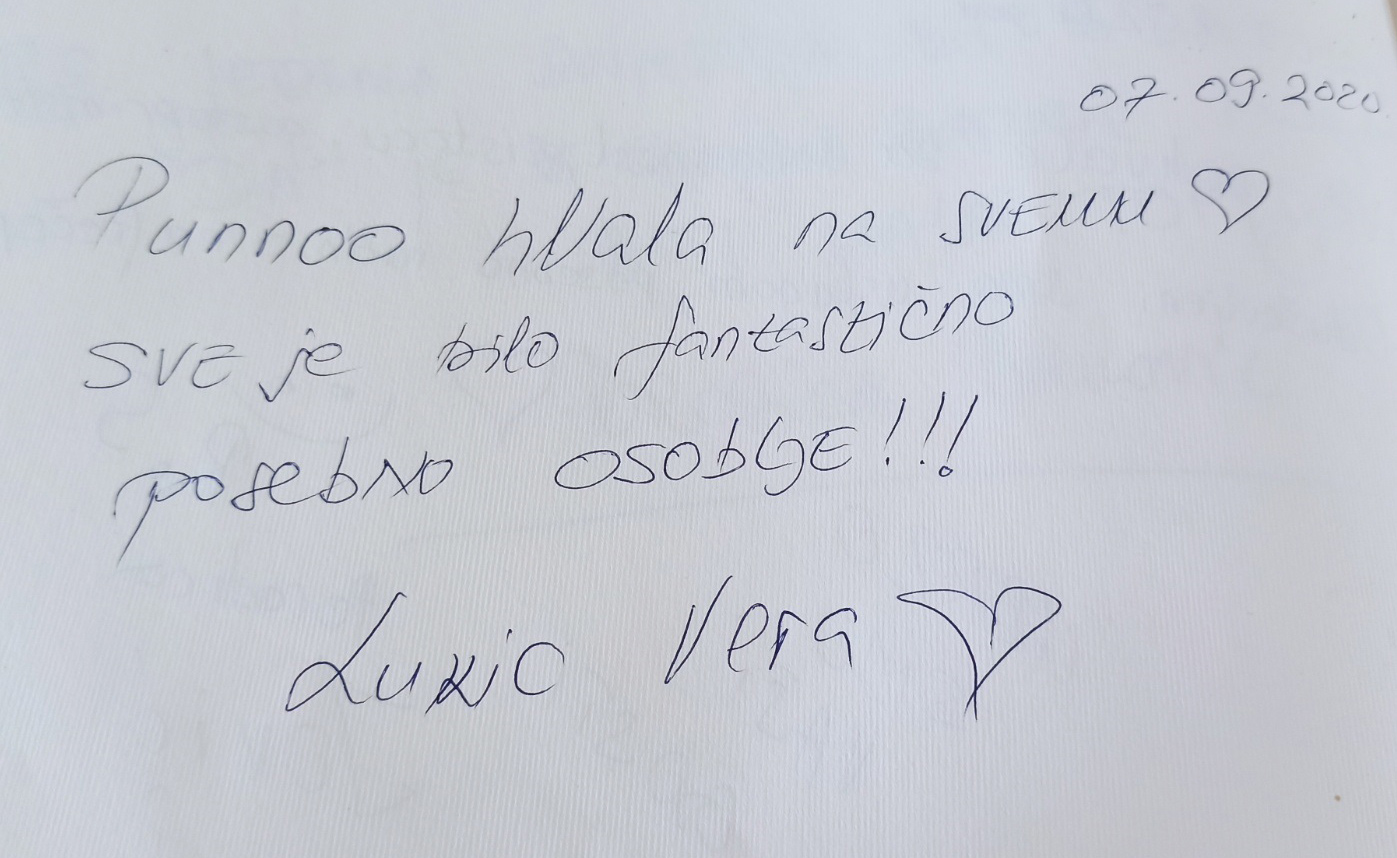 07.09.2020.
Punnoo hvala na SVEMU ♡
SVE je bilo fantastično
posebno OSOBLJE!!!
Lukic Vera ♡